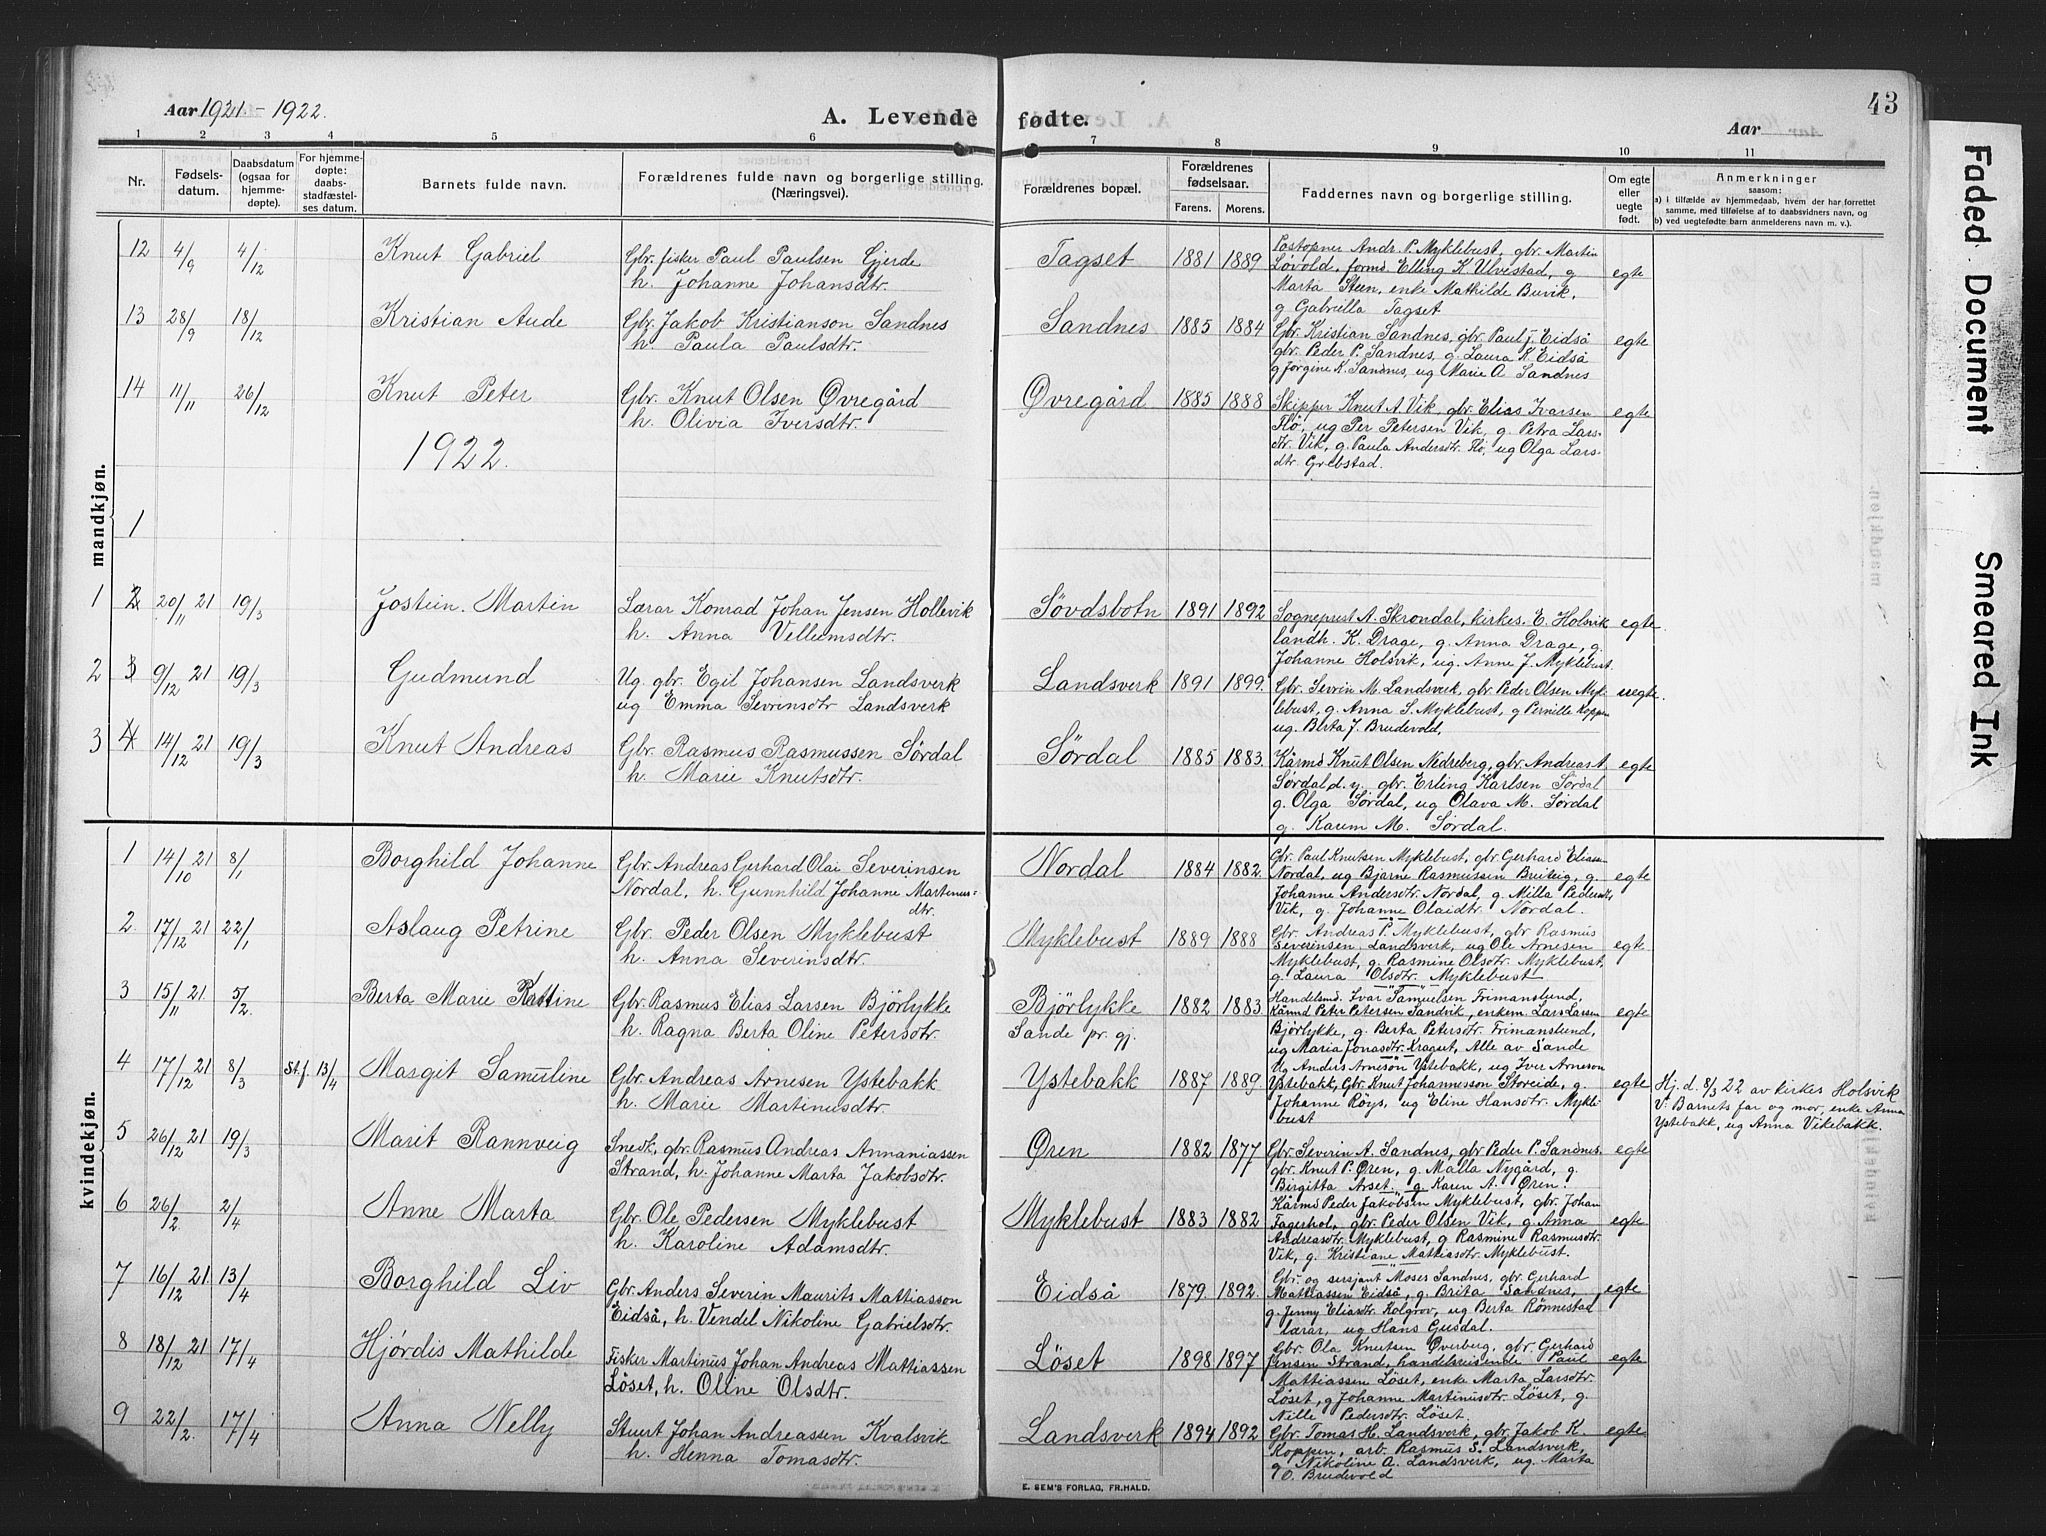 Aar 1921.-1922.
A. Levende fødte.
Aar
43
1 2 3 4 5 6 7 8 9 10 11
Nr.
Fødselsdatum.
Daabsdatum (ogsaa for hjemmedøpte).
For hjemmedøpte: daabsstadfæstelses datum.
Barnets fulde navn.
Forældrenes fulde navn og borgerlige stilling. (Næringsvei).
Forældrenes bopæl.
Forældrenes fødselsaar.
Farens. Morens.
Faddernes navn og borgerlige stilling.
Om egte eller uegte født.
Anmerkninger
saasom:
a) i tilfælde av hjemmedaab, hvem der har forrettet
samme, med tilføielse af to daabsvidners navn, og
b) ved uegtefødte barn anmelderens navn m. v.).
mandkjøn.
12 4/9 4/12 Knut Gabriel Gbr. fisker Paul Paulsen Gjerde
h. Johanne Johansdtr.
Tagset 1881 1889
Postopner Andr. P. Myklebust, gbr. Martin
Løvold, formd Elling K. Ulvestad, g
Marta Steen, enke Mathilde Buvik,
g Gabrilla Tagset
egte
13 28/9 18/12 Kristian Aude Gbr. Jakob Kristianson Sandnes
h. Paula Paulsdtr.
Sandnes 1885 1884
Gbr. Kristian Sandnes, gbr Paul J. Eidså
gbr. Peder P. Sandnes, g. Laura K. Eidså
g Jorgine K. Sandnes, ug Marie A Sandnes
egte
14 11/11 26/12 Knut Peter Gbr. Knut Olsen Øvregård
h. Olivia Iversdtr.
Øvregård 1885 1888
Skipper Knut A. Vik, gbr. Elias Ivarsen
Flø, ug Per Petersen Vik, g. Petra Lars-
dtr. Vik, g. Paula Andersdtr. Flø, ug Olga Lars-
dtr. Grebstad.
egte
1922.
1
1 2 20/11 21 19/3 Jostein. Martin Lærar Konrad Johan Jensen Hollevik
h. Anna Vellumsdtr.
Søvdsbotn 1891 1892
Sogneprest A. Skrondal, kirkes. E. Holsvik
landh. K. Drage, g. Anna Drage, g.
Johanne Holsvik, ug. Anne J. Myklebust.
egte.
2 3 9/12 21 19/3 Gudmund Ug. gbr. Egil Johansen Landsverk
ug Emma Sevrensdtr Landsverk
Landsverk 1891 1899.
Gbr. Sevrin M. Landsverk, gbr Peder Olsen Myk-
lebust, g. Anna S. Myklebust, g Pernille Koppen
ug. Berta J. Brudevold,
uegte.
3 4 14/12 21 19/3 Knut Andreas Gbr. Rasmus Rasmussen Sørdal
h. Marie Knutsdtr.
Sørdal 1885 1883.
Kårmd Knut Olsen Nedreberg, gbr. Andreas A
Sørdal, d. y. gbr. Erling Karlsen Sørdal
g. Olga Sørdal, ug Olava M. Sørdal
g. Karen M. Sørdal.
egte
kvindekjøn.
1 14/10 21 8/1 Borghild Johanne Gbr. Andreas Gerhard Olai Severinsen
Nordal, h. Gunnhild Johanne Martinus-
dtr.
Nordal 1884 1882
Gbr. Paul Knutsen Myklebust, gbr Gerhard Eliassen
Nordal, ug Bjarne Rasmussen Breiteig, g.
Johanne Andersdtr. Nordal, g. Milla Pedersdtr
Vik, g. Johanne Olaidtr. Nordal.
egte
2. 17/12 21 22/1 Aslaug Petrine Gbr. Peder Olsen Myklebust
h. Anna Severinsdtr.
Myklebust 1889 1888
Gbr. Andreas P. Myklebust, gbr Rasmus
Severinsen Landsverk, ug Ole Arnesen
Myklebust, g. Rasmine Olsdtr. Myklebust,
g. Laura Olsdtr. Myklebust
egte
3 15/11 21 5/2. Berta Marie Gbr. Rasmus Elias Larsen Bjørlykke
h. Ragna Berta Oline Petersdtr.
Bjørlykke
Sande pr. gj.
1882 1883
Handelsmd. Ivar Samuelsen Frimanslund,
Kårmd Peter Petersen Sandvik, enkem. Lars Larsen
Bjørlykke, g. Berta Petersdtr. Frimanslund,
ug Maria Jonasdtr. Kragset, Alle av Sande
egte
4 17/12 21 8/3 St.f. 13/4 Margit Samuline Gbr. Andreas Arnesen Ystebakk
h. Marie Martinusdtr.
Ystebakk 1887 1889.
Ug Anders Arneson Ystebakk, ug Iver Arneson
Ystebakk, Gbr. Knut Johannesson Storeide, g.
Johanne Röys, ug Eline Hansdtr. Mykle-
bust
egte
Hj. d. 8/3 22 av kirkes Holsvik
V: Barnets far og mor, enke Anna
Ystebakk, ug Anna Vikebakk.
5 26/12 21 19/3 Marit Rannveig Snedk, gbr. Rasmus Andreas Annaniassen
Strand, h. Johanne Marta Jakobsdtr.
Øren 1882 1877
Gbr. Severin A. Sandnes, gbr Peder P. Sandnes.
gbr. Knut P. Øren, g. Malla Nygård, g.
Birgitta Arset g Karen A. Øren.
egte
6 26/2 2/4 Anne Marta Gbr. Ole Pedersen Myklebust
h. Karoline Adamsdtr.
Myklebust 1883 1882
Kårmd Peder Jakobsen Myklebust, gbr. Johan
Fagerhol, gbr. Peder Olsen Vik, g. Anna
Andreasdtr. Myklebust, g Rasmine Rasmusdtr.
Vik, g. Kristiane Mattiasdtr. Myklebust.
egte
7 16/12 21. 13/4 Borghild Liv Gbr. Anders Severin Maurits Mattiasson
Eidså, h. Vendel Nikoline Gabrielsdtr.
Eidså 1879. 1892.
Gbr. og sersjant Moses Sandnes, gbr. Gerhard
Mattiassen Eidså, g Brita Sandnes,
g. Jenny Eliasdtr. Kolgrov, ug Berta Rønnestad
lærar, ug Hans Gusdal.
egte
8 18/12 21 17/4 Hjørdis Mathilde Fisker Martinus Johan Andreas Mattiassen
Løset, h. Oline Olsdtr.
Løset 1898 1897
Gbr. Ola Knutsen Øverberg, gbr. Gerhard
Jensen Strand, handelsreisende Paul
Mattiassen Løset, enke Marta Larsdtr.
Løset, g Johanne Martinusdtr. Løset, g.
Nille Pedersdtr. Løset.
egte
9 22/2. 17/4 Anna Nelly Stuert Johan Andreassen Kvalsvik
h. Henna Tomasdtr.
Landsverk 1894 1892
Gbr. Tomas H. Landsverk, gbr. Jakob K.
Koppen, arb. Rasmus S. Landsverk,
g Nikoline A. Landsverk, ug. Marta
O. Brudevold
egte
E. SEM'S FORLAG, FR.HALD.
Faded Document
Smeared Ink